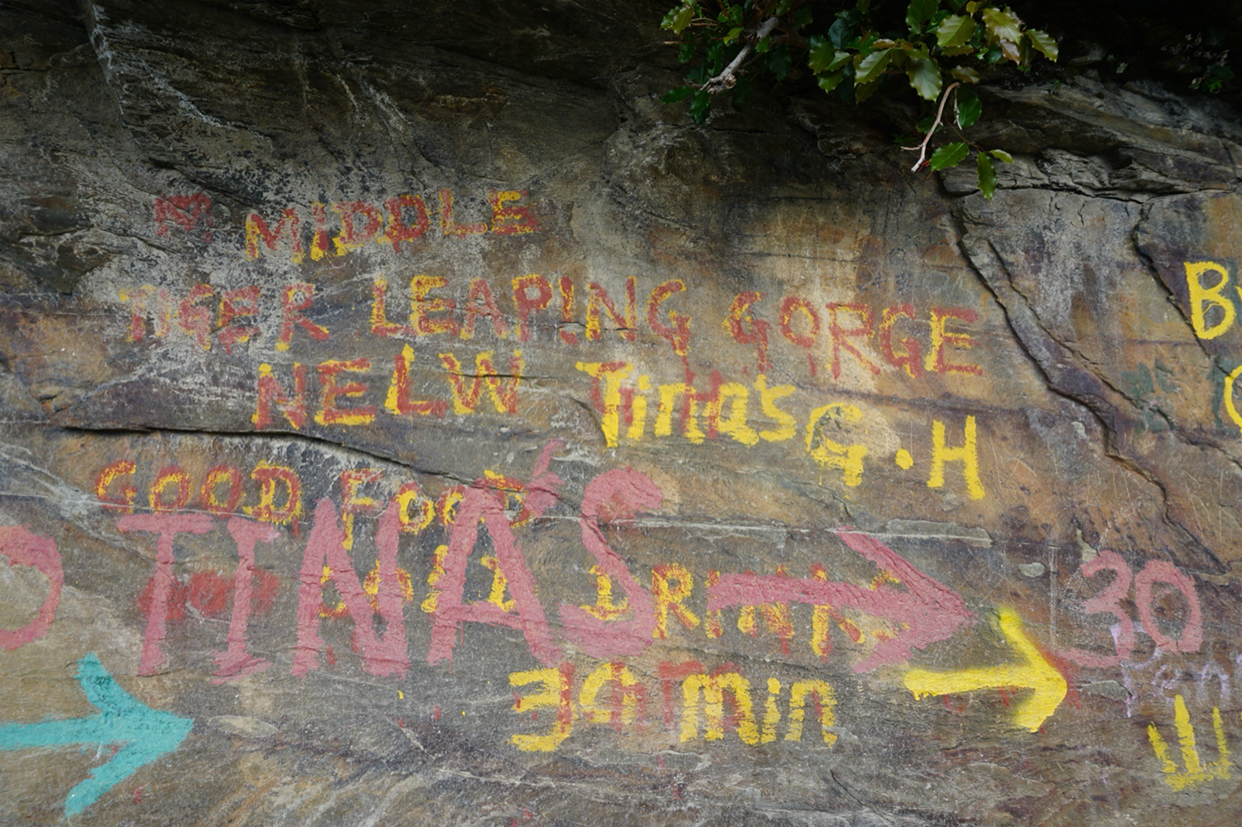 MIDDLE
TIGER LEAPING GORGE
NELW Tina's G.H
GOOD FOOD
TINA'S
AND DRINK
30
min